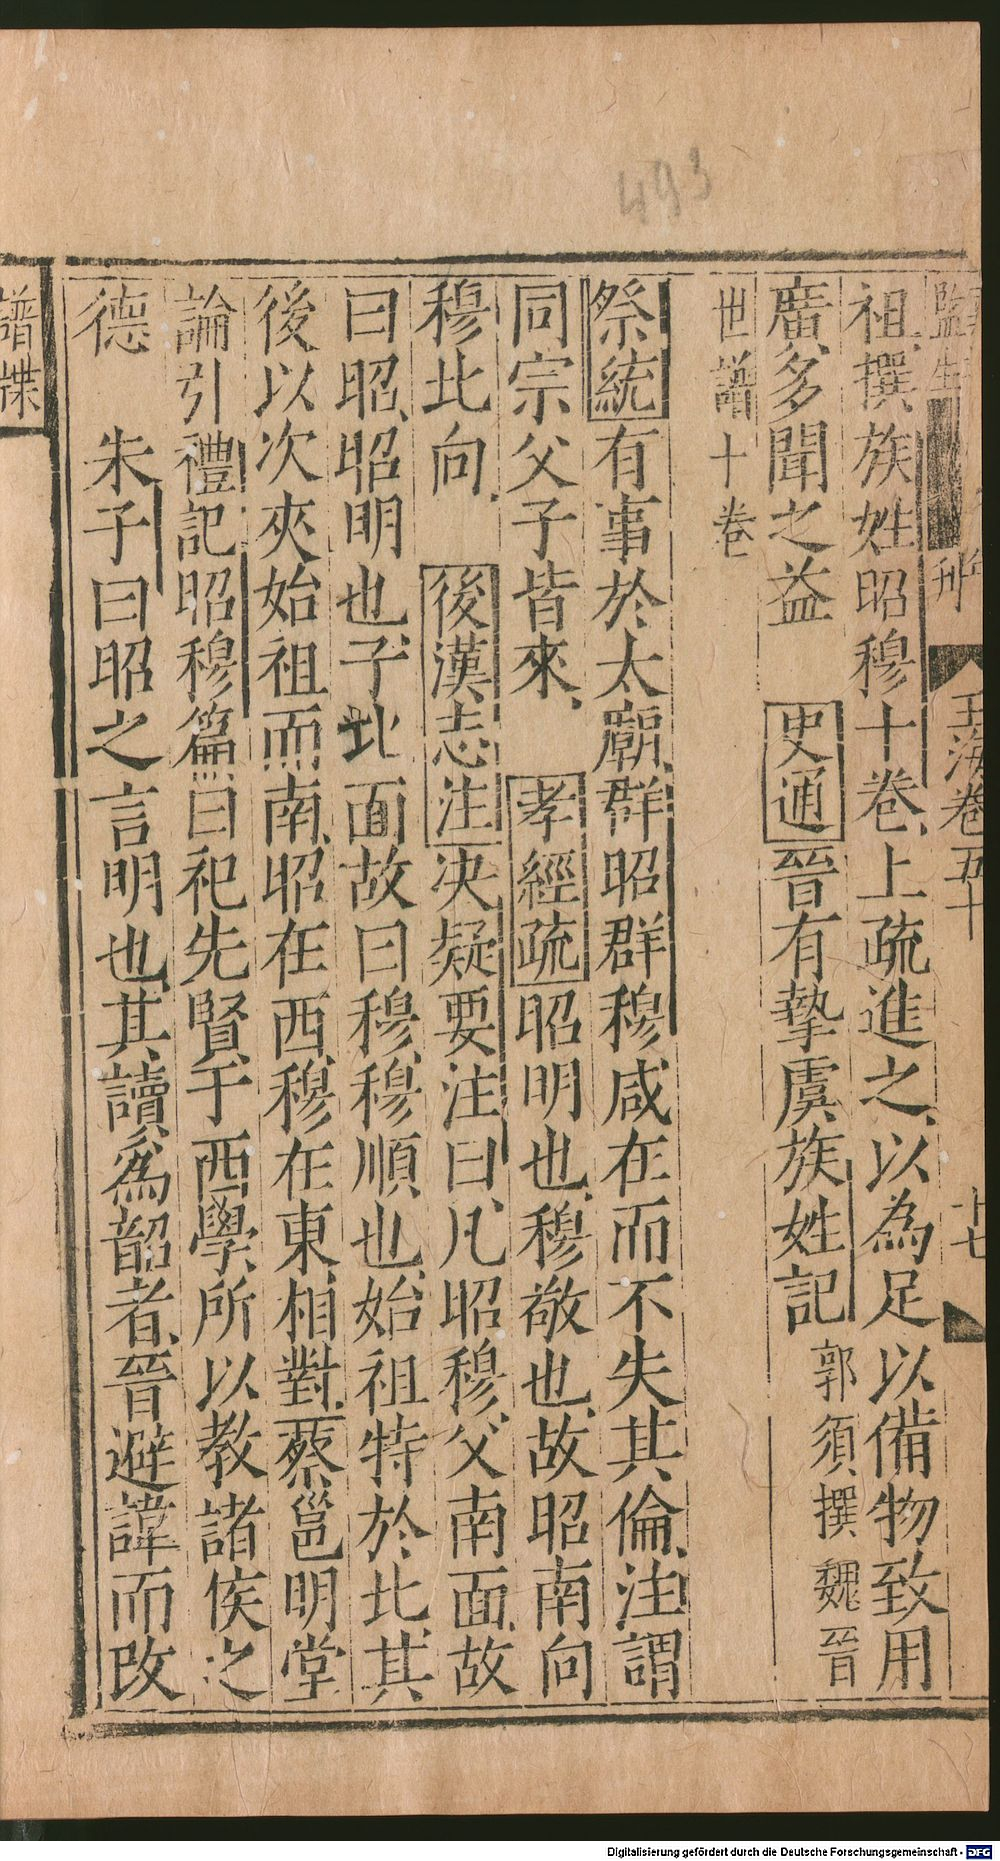 493
監生
刊
玉海卷五十
十七
祖撰族姓昭穆十卷上疏進之以為足以備物致用
廣多聞之益 史通晉有摯虞族姓記郭須撰魏晉
世譜十卷
祭統有事於太廟群昭群穆咸在而不失其倫注謂
同宗父子皆來 孝經疏昭明也穆敬也故昭南向
穆北向 後漢志注决疑要注曰凡昭穆父南面故
曰昭昭明也子北面故曰穆穆順也始祖特於北其
後以次夾始祖而南昭在西穆在東相對蔡邕明堂
論引禮記昭穆篇曰祀先賢于西學所以教諸侯之
德 朱子曰昭之言明也其讀爲韶者晉避諱而改
譜牒
Digitalisierung gefördert durch die Deutsche Forschungsgemeinschaft - DFG